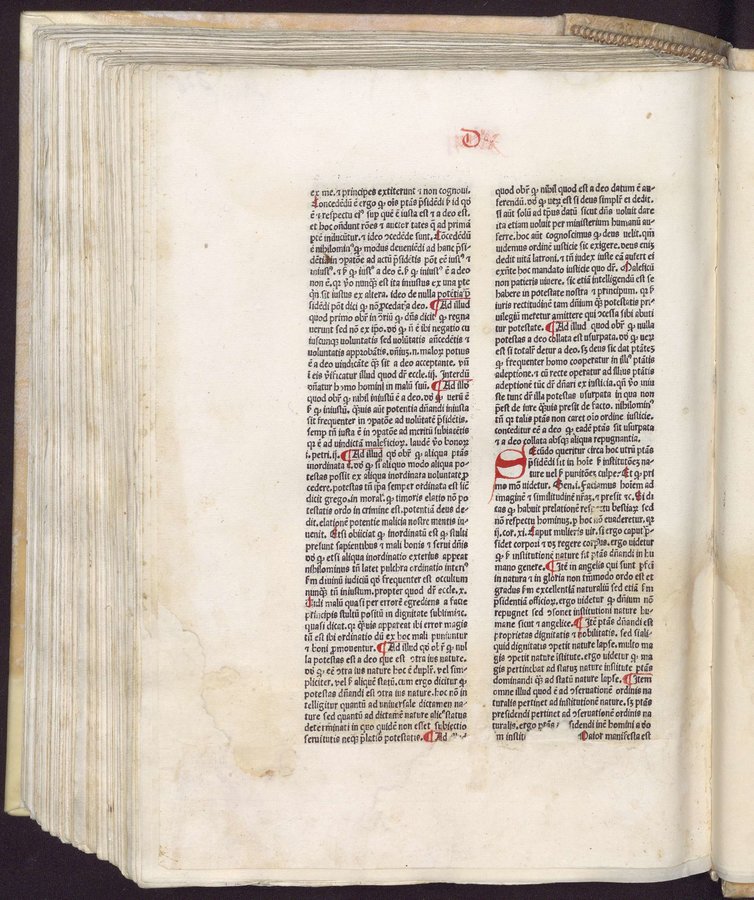 D
ex me. ⁊ principes extiterunt ⁊ non cognoui.
Concedēdū ē ergo
ē ⁊ respectu eiꝰ sup quē ē iusta est ⁊ a deo est.
et hoc oñdunt rōes ⁊ auctor tates q̄ ad primā
ptē inducūtur. ⁊ ideo ꝯcedēde sunt. Cōcedēdū
ē nihilominꝰ ꝙ modus deueniēdi ad hanc p̄si-
iniusꝰ. ⁊ ꝙ iusꝰ a deo ē. ꝙ iniusꝰ ē a deo
non ē. qꝛ vo nunqꝫ est ita iniustus ex una pte
qn̄ sit iustus ex altera. ideo de nulla potētia p̄
sidēdi pōt dici ꝙ nō ꝓcedat a deo. ¶ Ad illud
quod primo obr̄ in ꝯriū ꝙ dn̄s dicit ꝙ regna
uerunt sed nō ex ip̄o. dō ꝙ ñ ē ibi negatio cu
iuscunqꝫ voluntatis sed volūtatis antecēdētis ⁊
voluntatis approbātis. oñiuꝫ. n. maloꝝ potius
ē a deo vindicāte qꝫ sit a deo acceptante. vñ
i eis v̓ificatur illud quod dr̄ eccle. iij. Interdū
dn̄atur homo homini in malū suū. ¶ Ad illō
quod obr̄ ꝙ nihil iniustū ē a deo. dō ꝙ verū ē
ꝙ iniustū. quis aut potentia dn̄andi iniusta
sit frequenter in ꝯpatōe ad volūtatē p̄sidētis.
semp tn̄ iusta ē in ꝯpatōe ad meritū subiacētis
qꝛ ē ad vindictā maleficioꝝ. laudē vo bonoꝝ
i. petri. ij. ¶ Ad illud qō obr̄ ꝙ aliqua ptās
inordinata ē. dō ꝙ si aliquo modo aliqua po-
testas possit ex aliqua inordinata voluntate ꝓ
cedere. potestas tn̄ ip̄a semper ordinata est sic̄
dicit grego. in moral. ꝙ timoris elatio nō po
testatis ordo in crimine est. potentiā deus de-
dit. elationē potentie malicia nostre mentis in-
uenit. Etsi obiiciat ꝙ inordinatū est ꝙ stulti
presunt sapientibus ⁊ mali bonis ⁊ serui dn̄is
dō ꝙ etsi aliqua inordinatio exterius appeat
nihilominus tn̄ latet pulchra ordinatio interiꝰ
km̄ diuinū iudiciū qō frequenter est occultum
nunqꝫ tn̄ iniustum. propter quod dr̄ eccle. x.
Uidi malū quasi per errorē egrediens a facie
principis stultū positū in dignitate sublimi ꝛc.
quasi dicat. qꝛ quis appareat ibi error magis
tn̄ est ibi ordinatio dū ex hoc mali puniuntur
⁊ boni ꝓmouentur. ¶ Ad illud qō obr̄ ꝙ nul
la potestas est a deo que est ꝯtra ius nature.
dō ꝙ eē ꝯtra ius nature hoc ē duplr̄. vel sim-
pliciter. vel ꝙ aliquē statū. cum ergo dicitur ꝙ
potestas dn̄andi est ꝯtra ius nature. hoc nō in
telligitur quantū ad uniuersale dictamen na-
ture sed quantū ad dictamē nature alicꝰ status
determinati in quo quidē non esset subiectio
seruitutis neqꝫ platio potestatis. ¶ Ad
quod obr̄ ꝙ nihil quod est a deo datum ē au-
ferendū. dō ꝙ veꝝ est si deus simplr̄ ei dedit.
si aut solū ad tp̄us datū sicut dn̄s voluit dare
ita etiam voluit per ministerium humanū au-
ferre. hoc aut cognoscimus ꝙ deus uelit. qm̄
uidemus ordinē iusticie sic exigere. deus eniꝫ
dedit uitā latroni. ⁊ tn̄ iudex iuste eā aufert ei
exn̄te hoc mandato iusticie quo dr̄. Maleficū
non patieris viuere. sic etiā intelligendū est se
habere in potestate nostra ⁊ principum. qꝛ
iuris rectitudinē tam dn̄ium qꝫ potestatis pri-
uilegiū meretur amittere qui ꝯcessa sibi abuti
tur potestate. ¶ Ad illud quod obr̄ ꝙ nulla
potestas a deo collata est usurpata. dō ꝙ uerū
est si totalr̄ detur a deo. sꝫ deus sic dat ptātes
ꝙ frequenter homo cooperatur in illiꝰ ptātis
adeptione. ⁊ ūn recte operatur ad illius ptātis
adeptionē tūc dr̄ dn̄ari ex iusticia. qn̄ vō miu
ste tunc dr̄ illa potestas usurpata in qua non
p̄est de iure quis presit de facto. nihilominꝰ
tn̄ qꝛ talis ptās non caret oīo ordine iusticie.
conceditur eē a deo ꝙ. eadē ꝙ. sit usurpata
⁊ a deo collata absqꝫ aliqua repugnantia.
Secūdo queritur circa hoc utrū ptās
p̄sidēdi sit in hoīe ꝙ institutōeꝫ na-
ture uel ꝙ punitōeꝫ culpe. Et ꝙ pri
mo mō videtur. Gen. i. Faciamus hoīem ad
imaginē ⁊ similitudinē nr̄aꝫ. ⁊ presit ꝛc. Si di
cas ꝙ habuit prelationē respectu bestiaꝝ sed
nō respectu hominuꝫ. ꝓ hoc nō euaderetur. qꝛ
ij. cor. xi. Caput mulieris uir. si ergo caput p̄-
sidet corpori ⁊ dꝫ regere corpus. ergo uidetur
ꝙ ꝙ institutionē nature sit ptās dn̄andi in hu
mano genere. ¶ Itē in angelis qui sunt pfci
in natura ⁊ in gloria non tm̄modo ordo est et
gradus km̄ excellentiā naturaliū sed etiā km̄
psidentiā officioꝝ. ergo uidetur ꝙ dn̄ium nō
repugnet sed ꝯsonet institutioni nature hu-
mane sicut ⁊ angelice. ¶ Itē ptās dn̄andi est
proprietas dignitatis ⁊ nobilitatis. sed si ali-
quid dignitatis ꝯpetit nature lapse. multo ma
gis ꝯpetit nature īstitute. ergo uidetur ꝙ ma
gis pertinebat ad status nature institute ptās
dominandi qꝫ ad statū nature lapse. ¶ Item
omne illud quod ē ad ꝯseruationē ordinis na
turalis pertinet ad institutionē nature. sꝫ ptās
presidendi pertinet ad ꝯseruationē ordinis na
turalis. ergo ptās sidendi inē homini a do
m instit Maior manifesta est